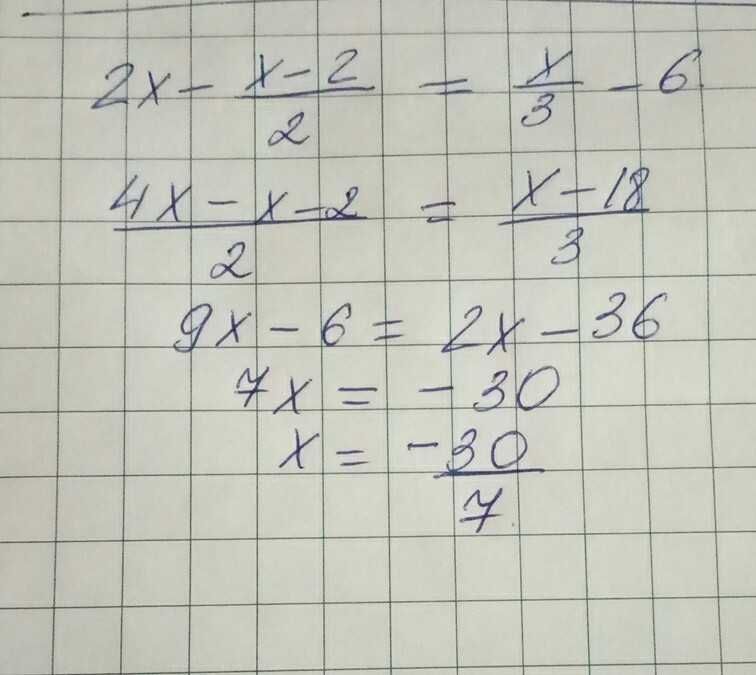 2x - (x-2)/2 = x/3 - 6
(4x - x - 2)/2 = (x - 18)/3
9x - 6 = 2x - 36
7x = -30
x = -30/7